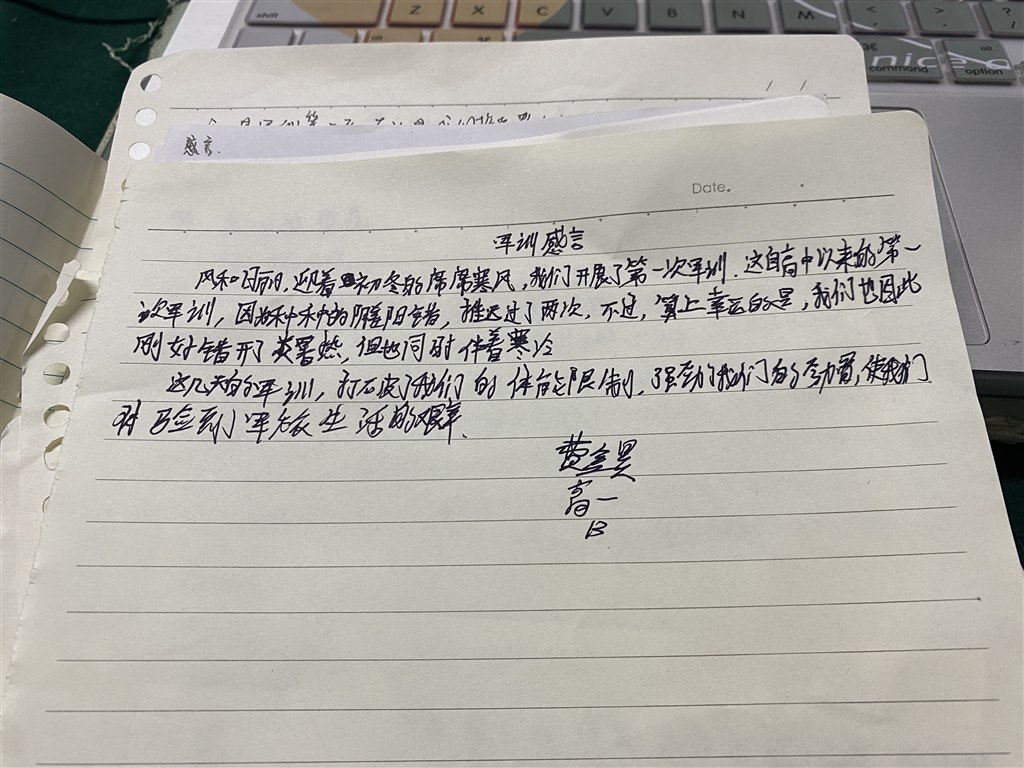 shift Z X C V B N M < , > . ? /
⌘ command alt option
感言.
Date.
军训感言
风和日丽,迎着初冬的席席寒风,我们开展了第一次军训.这自高中以来的第一
次军训,因为种种的阴差阳错,推迟过了两次,不过,算上幸运的是,我们也因此
刚好错开了炎暑燃,但也同时伴着寒冷
这几天的军训,打破了我们的体能限制,强劲了我们的劲胃,使我们
体验到军旅生活的艰辛.
高一
13